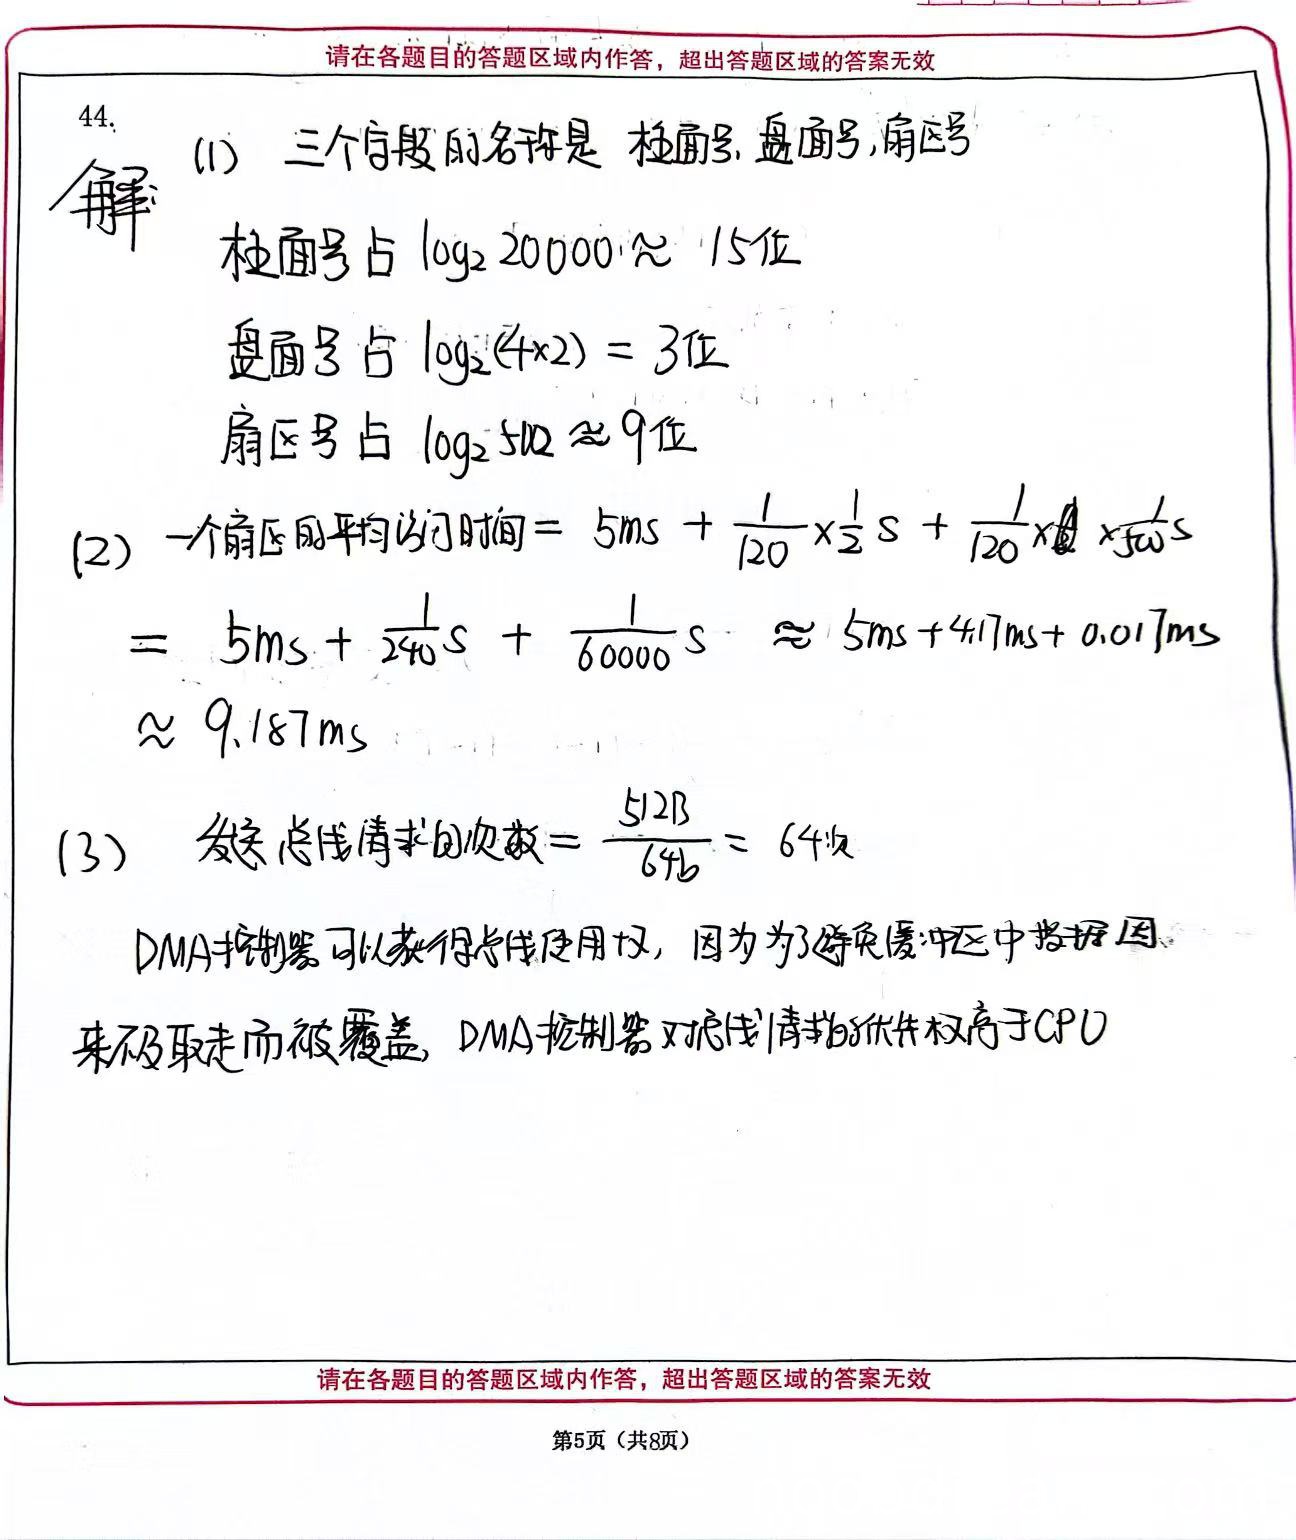 请在各题目的答题区域内作答，超出答题区域的答案无效
44.
解：
(1) 三个字段的名称是 柱面号、盘面号，扇区号
柱面号占 log₂ 20000 ≈ 15位
盘面号占 log₂(4×2) = 3位
扇区号占 log₂ ≈ 9位
(2) 一个扇区的平均访问时间 = 5ms + 1/120 × 1/2 s + 1/120 × 1/500 s
= 5ms + 1/240 s + 1/60000 s ≈ 5ms + 4.17ms + 0.017ms
≈ 9.187ms
(3) 发送总线请求的次数 = 512B/64b = 64次
DMA控制器可以获得总线使用权，因为为了避免缓冲区中数据因
来不及取走而被覆盖，DMA控制器对总线请求的优先权高于CPU
请在各题目的答题区域内作答，超出答题区域的答案无效
第5页（共8页）